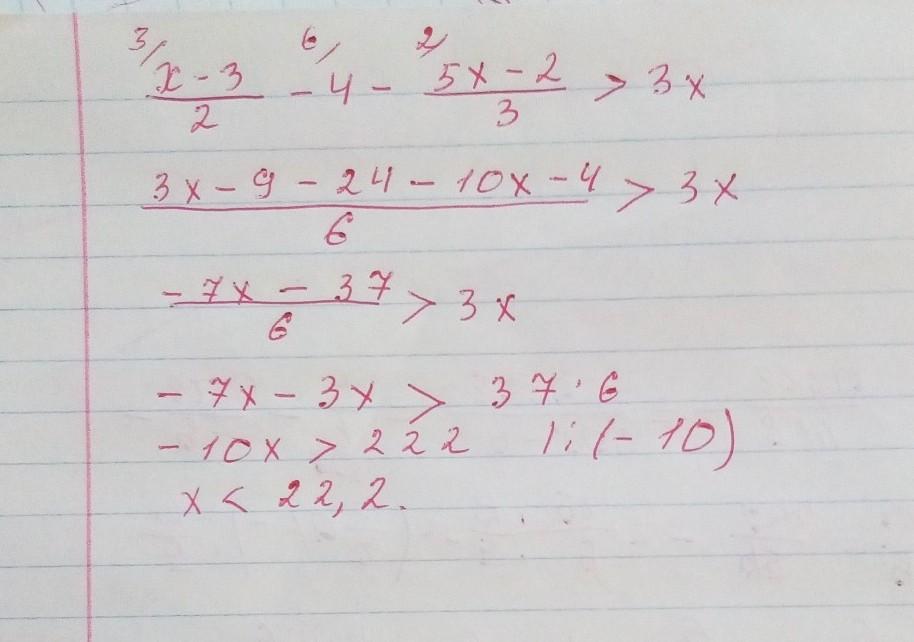 3/ 6/ 2/
x - 3 / 2 - 4 - 5x - 2 / 3 > 3x
3x - 9 - 24 - 10x - 4 / 6 > 3x
- 7x - 37 / 6 > 3x
- 7x - 3x > 37 · 6
- 10x > 222 | : (- 10)
x < 22,2.